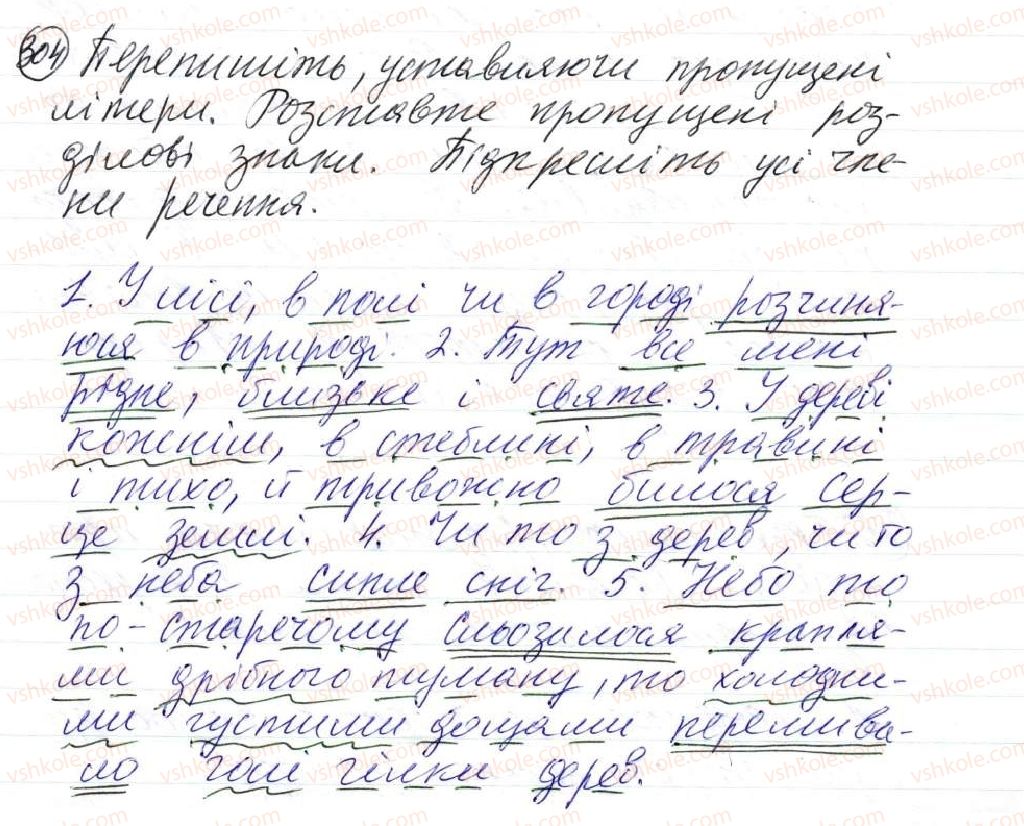 304 Перепишіть, уставляючи пропущені
літери. Розставте пропущені роз-
ділові знаки. Підкресліть усі чле-
ни речення.
1. У лісі, в полі чи в городі розчиня-
юся в природі. 2. Тут все мені
рідне, близьке і святе. 3. У дереві
кожнім, в стеблині, в травині
і тихо, й тривожно билося сер-
це землі. 4. Чи то з дерев, чи то
з неба сипле сніг. 5. Небо то
по-старечому сльозилося крапля-
ми дрібного туману, то холодни-
ми густими дощами перемива-
ло голі гілки дерев.